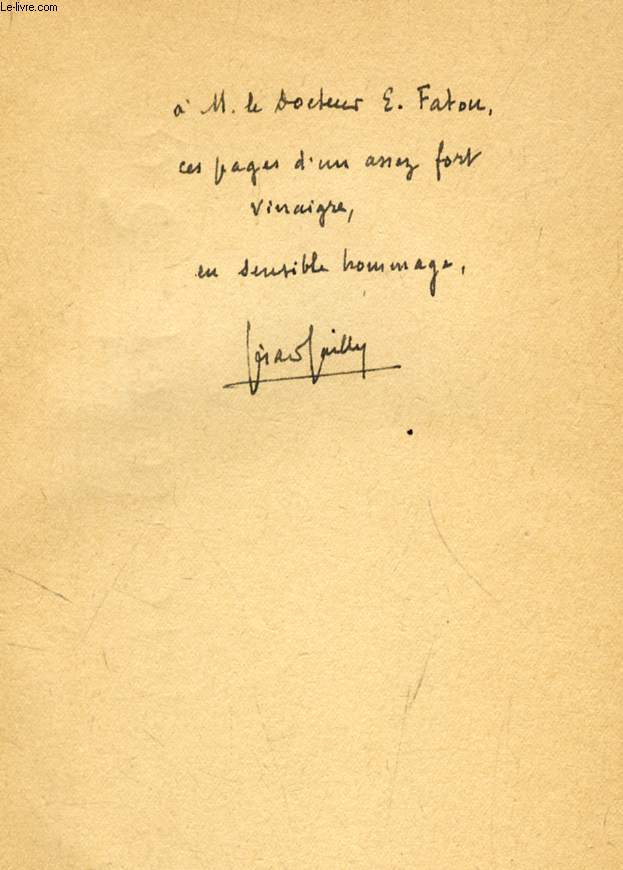 Le-livre.com
à M. le Docteur E. Fatou,
ces pages d'un assez fort
vinaigre,
en sensible hommage,
Gérard Gailly